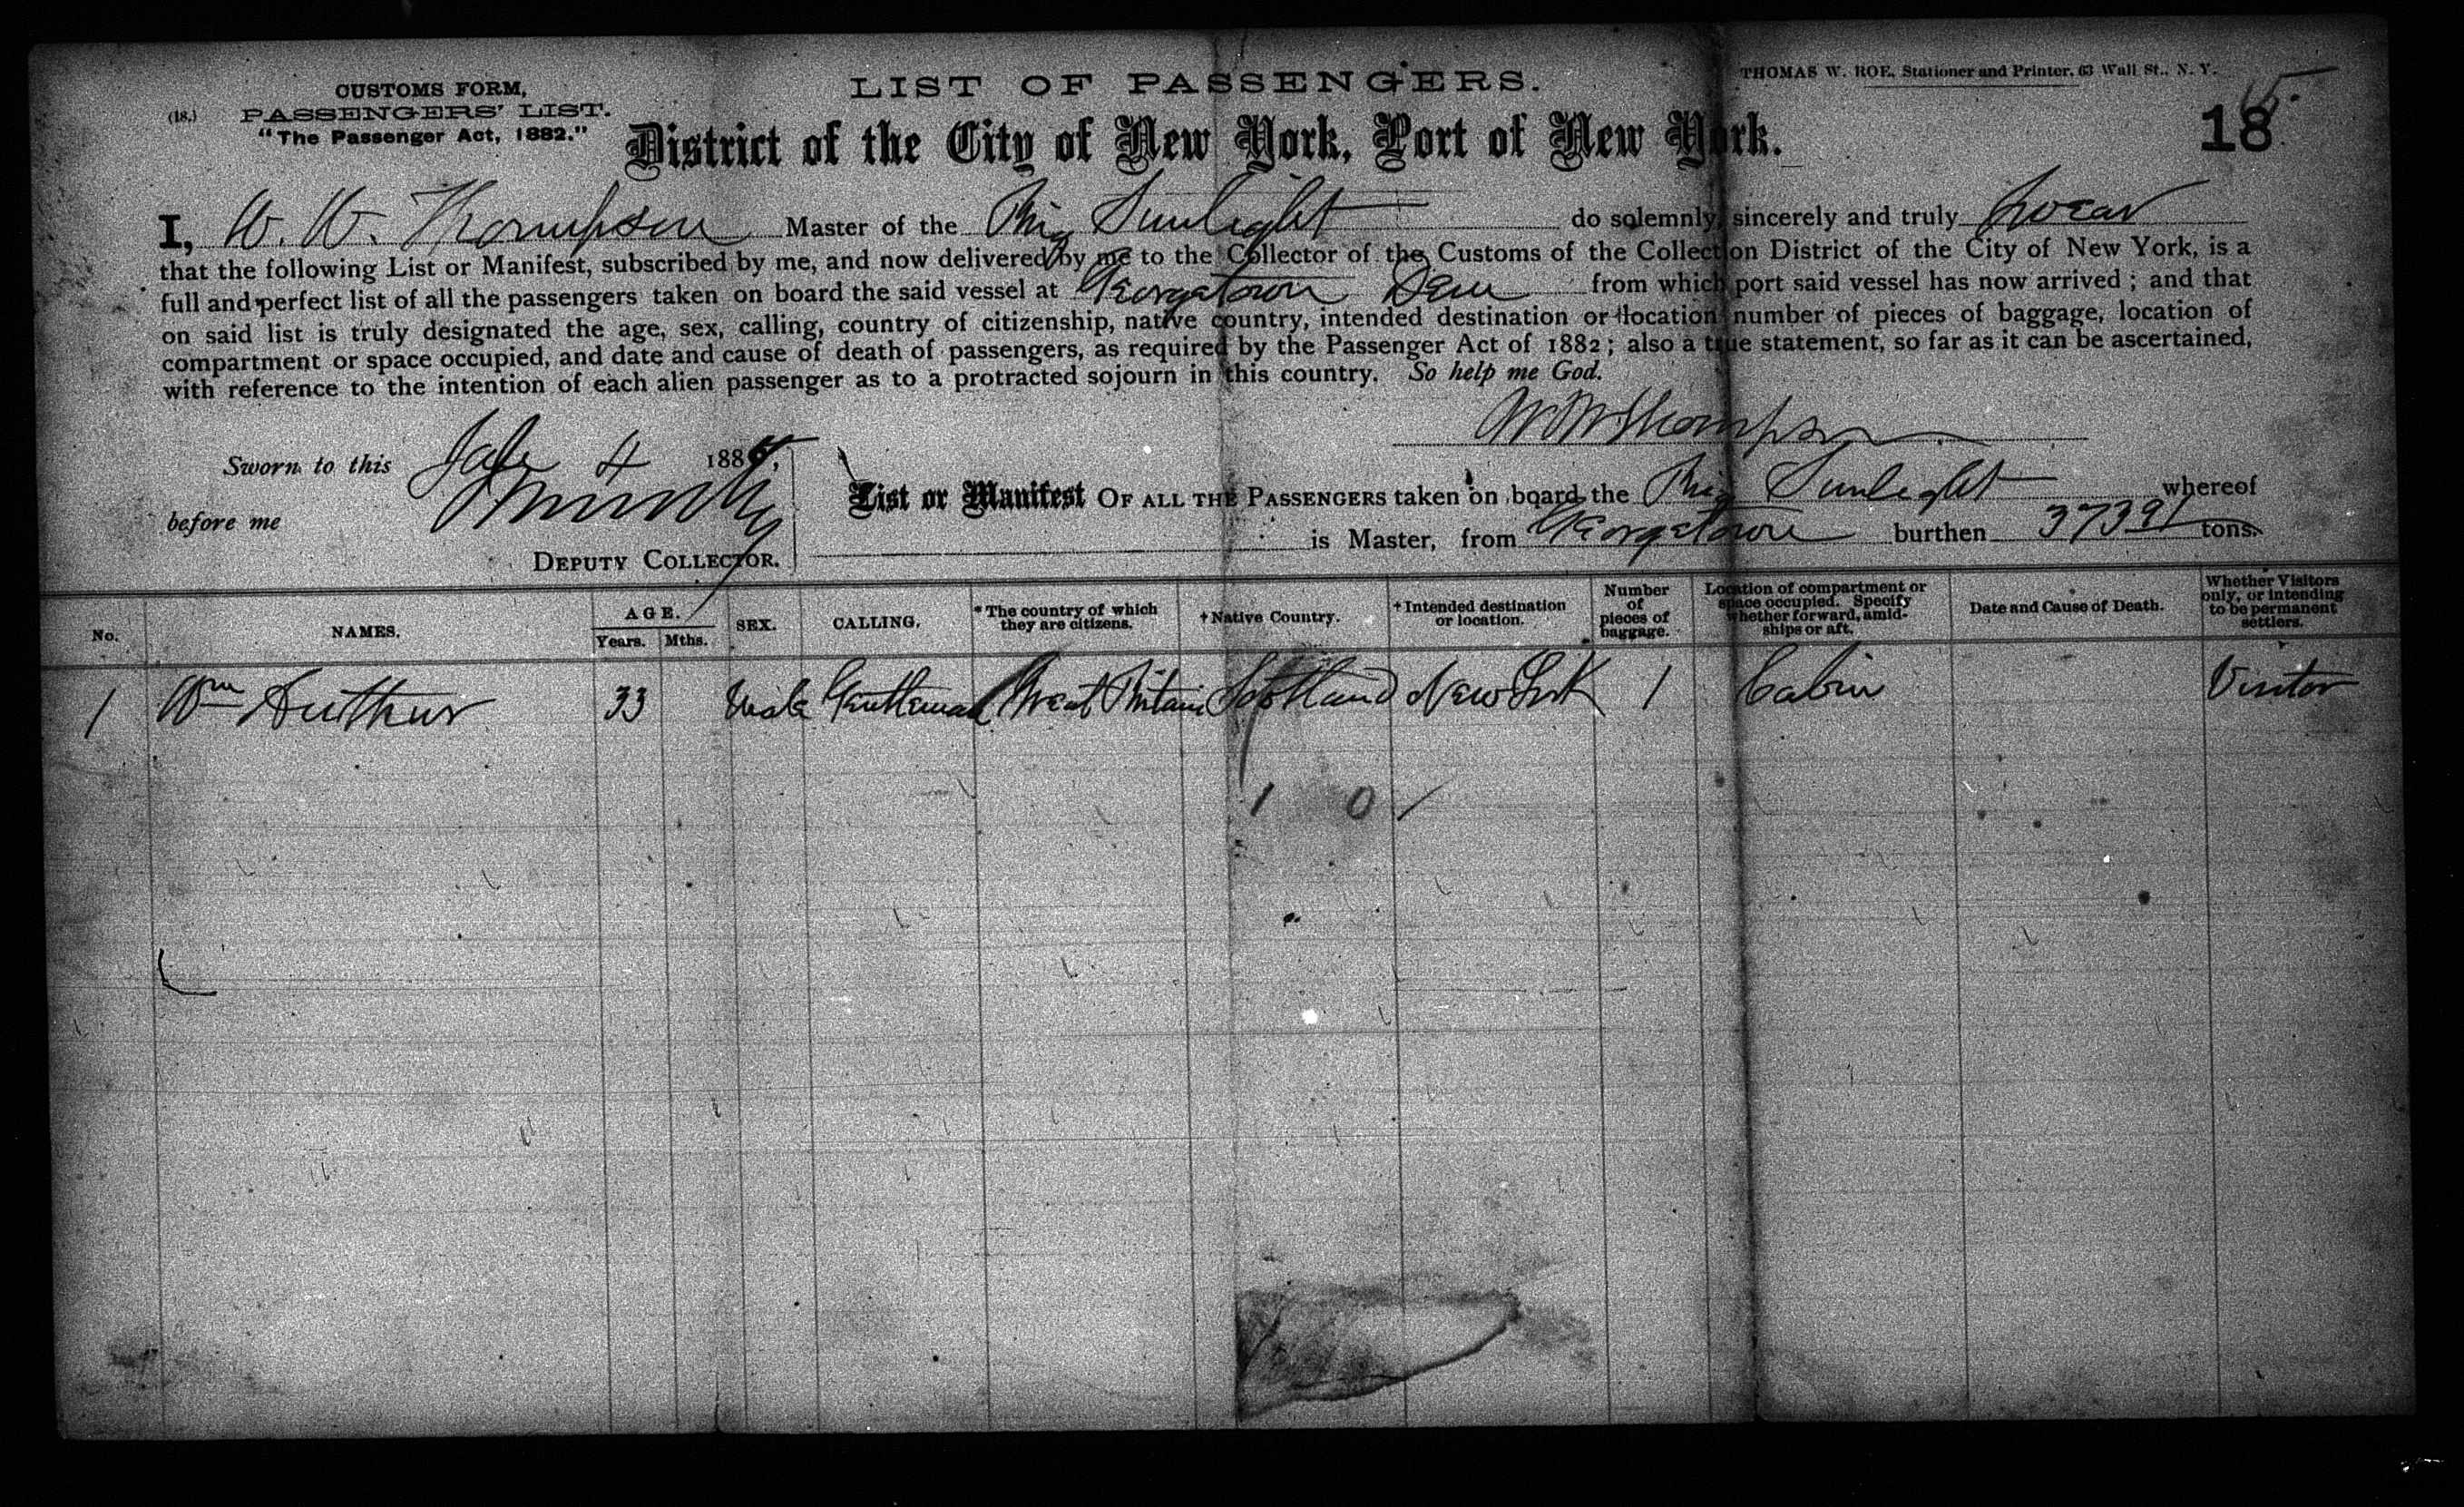 CUSTOMS FORM,
(18.) PASSENGERS' LIST.
"The Passenger Act, 1882."
LIST OF PASSENGERS.
THOMAS W. ROE, Stationer and Printer, 63 Wall St., N. Y.
District of the City of New York, Port of New York.
18
I, W. W. Thompson Master of the Brig Sunlight do solemnly, sincerely and truly swear
that the following List or Manifest, subscribed by me, and now delivered by me to the Collector of the Customs of the Collection District of the City of New York, is a
full and perfect list of all the passengers taken on board the said vessel at Georgetown Dem from which port said vessel has now arrived; and that
on said list is truly designated the age, sex, calling, country of citizenship, native country, intended destination or location number of pieces of baggage, location of
compartment or space occupied, and date and cause of death of passengers, as required by the Passenger Act of 1882; also a true statement, so far as it can be ascertained,
with reference to the intention of each alien passenger as to a protracted sojourn in this country. So help me God.
W W Thompson
Sworn to this 4 188
before me
DEPUTY COLLECTOR.
List or Manifest OF ALL THE PASSENGERS taken on board the Brig Sunlight whereof
is Master, from Georgetown burthen 373 91 tons.
No. NAMES. AGE. Years. Mths. SEX. CALLING. *The country of which they are citizens. †Native Country. †Intended destination or location. Number of pieces of baggage. Location of compartment or space occupied. Specify whether forward, amidships or aft. Date and Cause of Death. Whether Visitors only, or intending to be permanent settlers.
1 Wm Authur 33 Male Gentleman Great Britain Scotland New York 1 Cabin Visitor
1 0